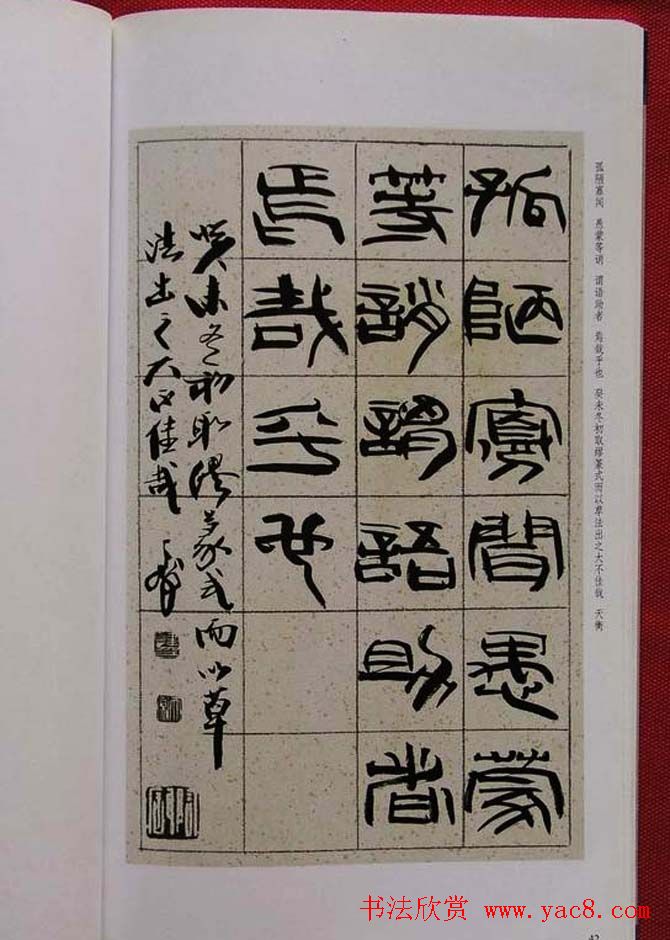 孤陋寡闻　愚蒙等诮　谓语助者　焉哉乎也　癸未冬初取缪篆式而以草法出之大不佳哉　天衡
孤陋寡聞愚蒙
等誚謂語助者
焉哉乎也
癸未冬初取繆篆式而以草
法出之大不佳哉 天衡
书法欣赏 www.yac8.com